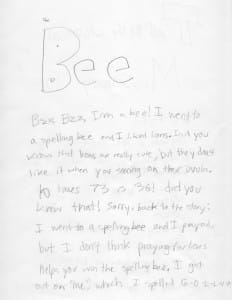 the
Bee
Bzz Bzz, I'm a bee! I went to
a spelling bee and I liked lions. Did you
know that lions are really cute, but they don't
like it when you on their
to times 73 is 36! did you
know that! Sorry, back to the story:
I went to a spelling bee and I prayed,
but I don't think praying for lions
helps you win the spelling bee. I got
out on "me", which I spelled